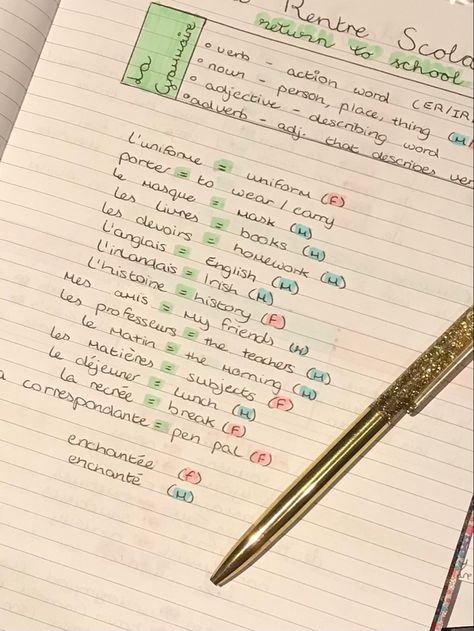 Rentre Scola
return to school
La Grammaire
• verb - action word (ER/IR/
• noun - person, place, thing (M/
• adjective - describing word
• adverb - adj. that describes ver
L'uniforme = uniform (F)
porter = to wear/carry
le masque = mask (M)
les livres = books (M)
les devoirs = homework (M)
L'anglais = English (M)
L'irlandais = Irish (M)
L'histoire = history (F)
Mes amis = My friends (M)
Les professeurs = the teachers (M)
le Matin = the morning (M)
les matières = subjects (F)
le déjeuner = lunch (M)
la recrée = break (F)
a correspondante = pen pal (F)
enchantée (f)
enchanté (M)